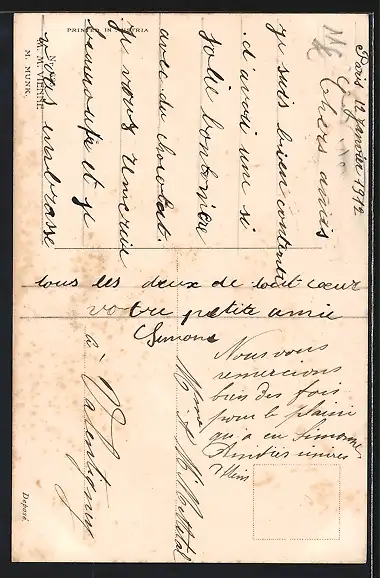 Paris 12 Janvier 1912
Chers amis
je suis bien contente
d'avoir une si
jolie bonbonière
avec du chocolat.
je vous remercie
beaucoup et je
vous embrasse
tous les deux de tout cœur
votre petite amie
Simone
Nous vous
remercions
bien des fois
pour le plaisir
qu'a eu Simone
Amitiés
Mme
à
PRINTED IN AUSTRIA
M. M. VIENNE
M. MUNK.
Deposé.